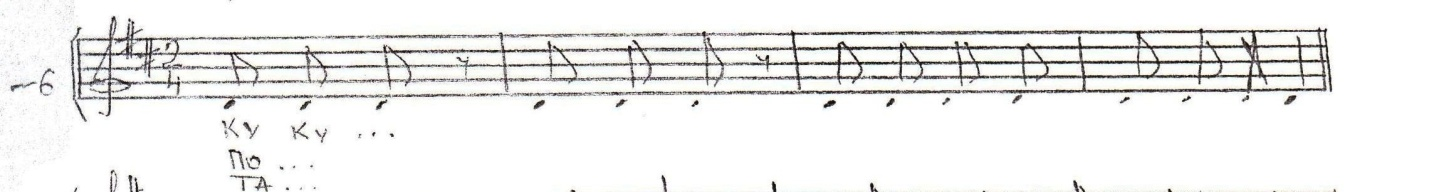 -6
2
4
КУ КУ ...
ПО ...
ТА ...